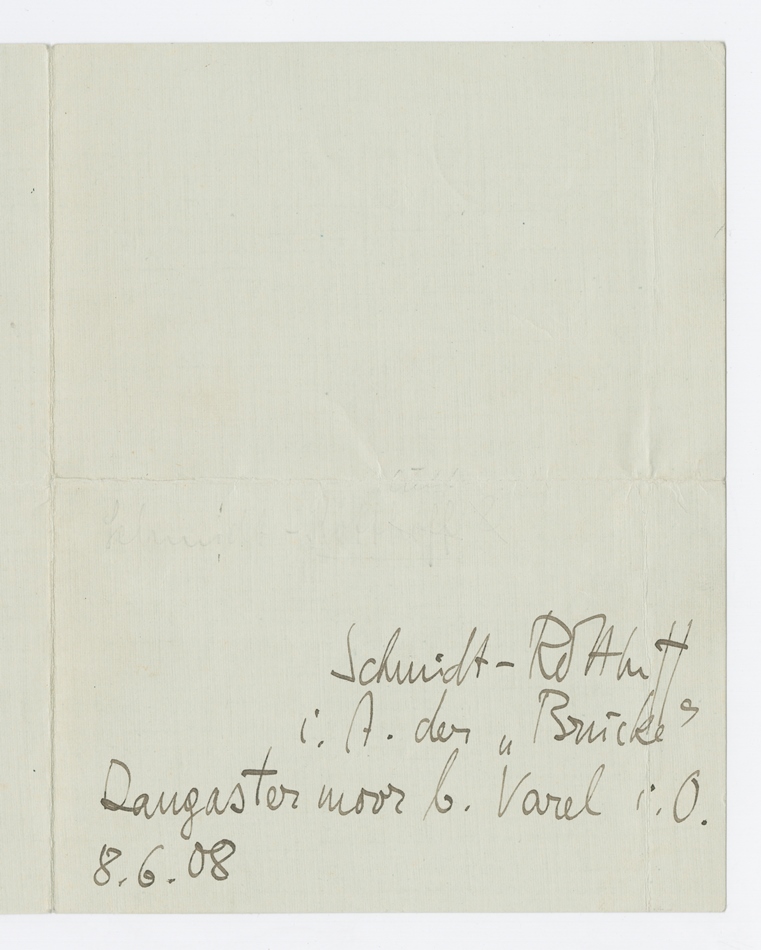 Schmidt-Rottluff
i. A. der „Brücke"
Dangastermoor b. Varel i. O.
8.6.08